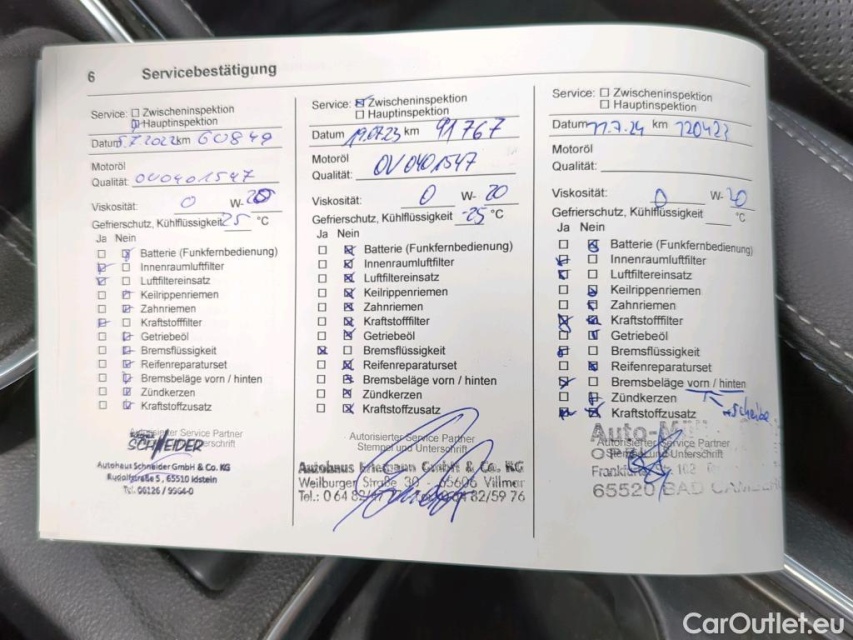 6 Servicebestätigung
Service: Zwischeninspektion
Hauptinspektion
Datum 5.7.2022 km 60849
Motoröl
Qualität: OV0401547
Viskosität: 0 W- 20
Gefrierschutz, Kühlflüssigkeit 25 °C
Ja Nein
Batterie (Funkfernbedienung)
Innenraumluftfilter
Luftfiltereinsatz
Keilrippenriemen
Zahnriemen
Kraftstofffilter
Getriebeöl
Bremsflüssigkeit
Reifenreparaturset
Bremsbeläge vorn / hinten
Zündkerzen
Kraftstoffzusatz
Autorisierter Service Partner
SCHNEIDER
Autohaus Schneider GmbH & Co. KG
Rudolfstraße 5, 65510 Idstein
Tel. 06126 / 9964-0
Service: Zwischeninspektion
Hauptinspektion
Datum 19.07.23 km 91767
Motoröl
Qualität: OV0401547
Viskosität: 0 W- 20
Gefrierschutz, Kühlflüssigkeit -25 °C
Ja Nein
Batterie (Funkfernbedienung)
Innenraumluftfilter
Luftfiltereinsatz
Keilrippenriemen
Zahnriemen
Kraftstofffilter
Getriebeöl
Bremsflüssigkeit
Reifenreparaturset
Bremsbeläge vorn / hinten
Zündkerzen
Kraftstoffzusatz
Autorisierter Service Partner
Stempel und Unterschrift
Autohaus GmbH & Co. KG
Weilburger Straße 30 - 65606 Villmar
Tel.: 0 64 82/59 76
Service: Zwischeninspektion
Hauptinspektion
Datum 11.7.24 km 120422
Motoröl
Qualität:
Viskosität: 0 W- 20
Gefrierschutz, Kühlflüssigkeit °C
Ja Nein
Batterie (Funkfernbedienung)
Innenraumluftfilter
Luftfiltereinsatz
Keilrippenriemen
Zahnriemen
Kraftstofffilter
Getriebeöl
Bremsflüssigkeit
Reifenreparaturset
Bremsbeläge vorn / hinten
Zündkerzen
Kraftstoffzusatz
+Scheibe
Autorisierter Service Partner
65520 BAD CAMBERG
CarOutlet.eu